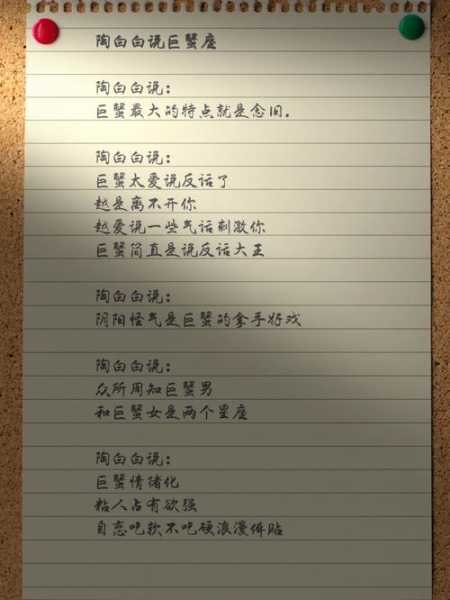 陶白白说巨蟹座
陶白白说：
巨蟹最大的特点就是念旧.
陶白白说：
巨蟹太爱说反话了
越是离不开你
越爱说一些气话刺激你
巨蟹简直是说反话大王
陶白白说：
阴阳怪气是巨蟹的拿手好戏
陶白白说：
众所周知巨蟹男
和巨蟹女是两个星座
陶白白说：
巨蟹情绪化
粘人占有欲强
自恋吃软不吃硬浪漫体贴